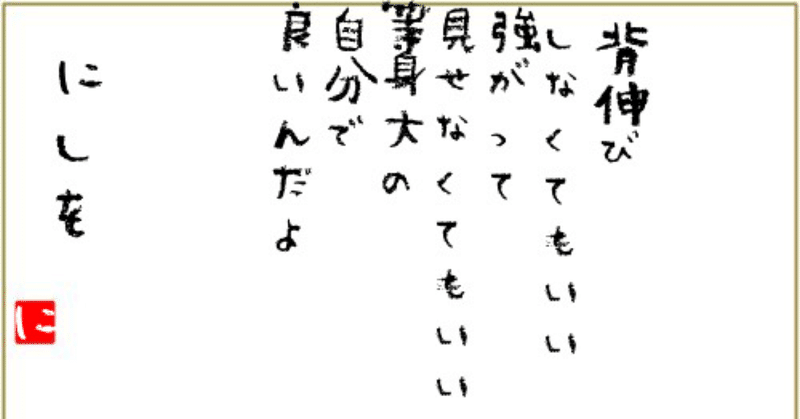 背伸び
しなくてもいい
強がって
見せなくてもいい
等身大の
自分で
良いんだよ
にしを
に